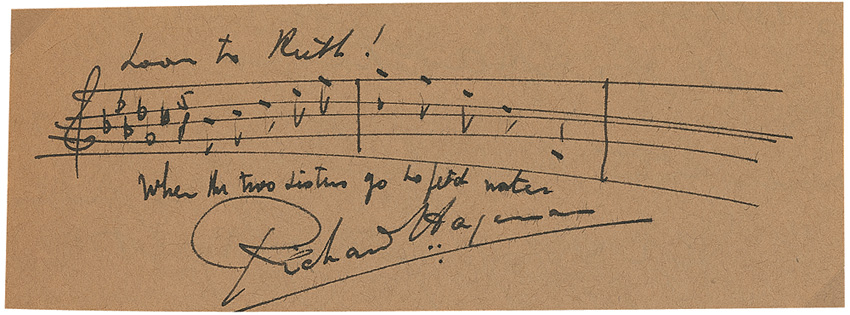 to Ruth!
5
8
When the two sisters go to fetch water
Richard Hageman